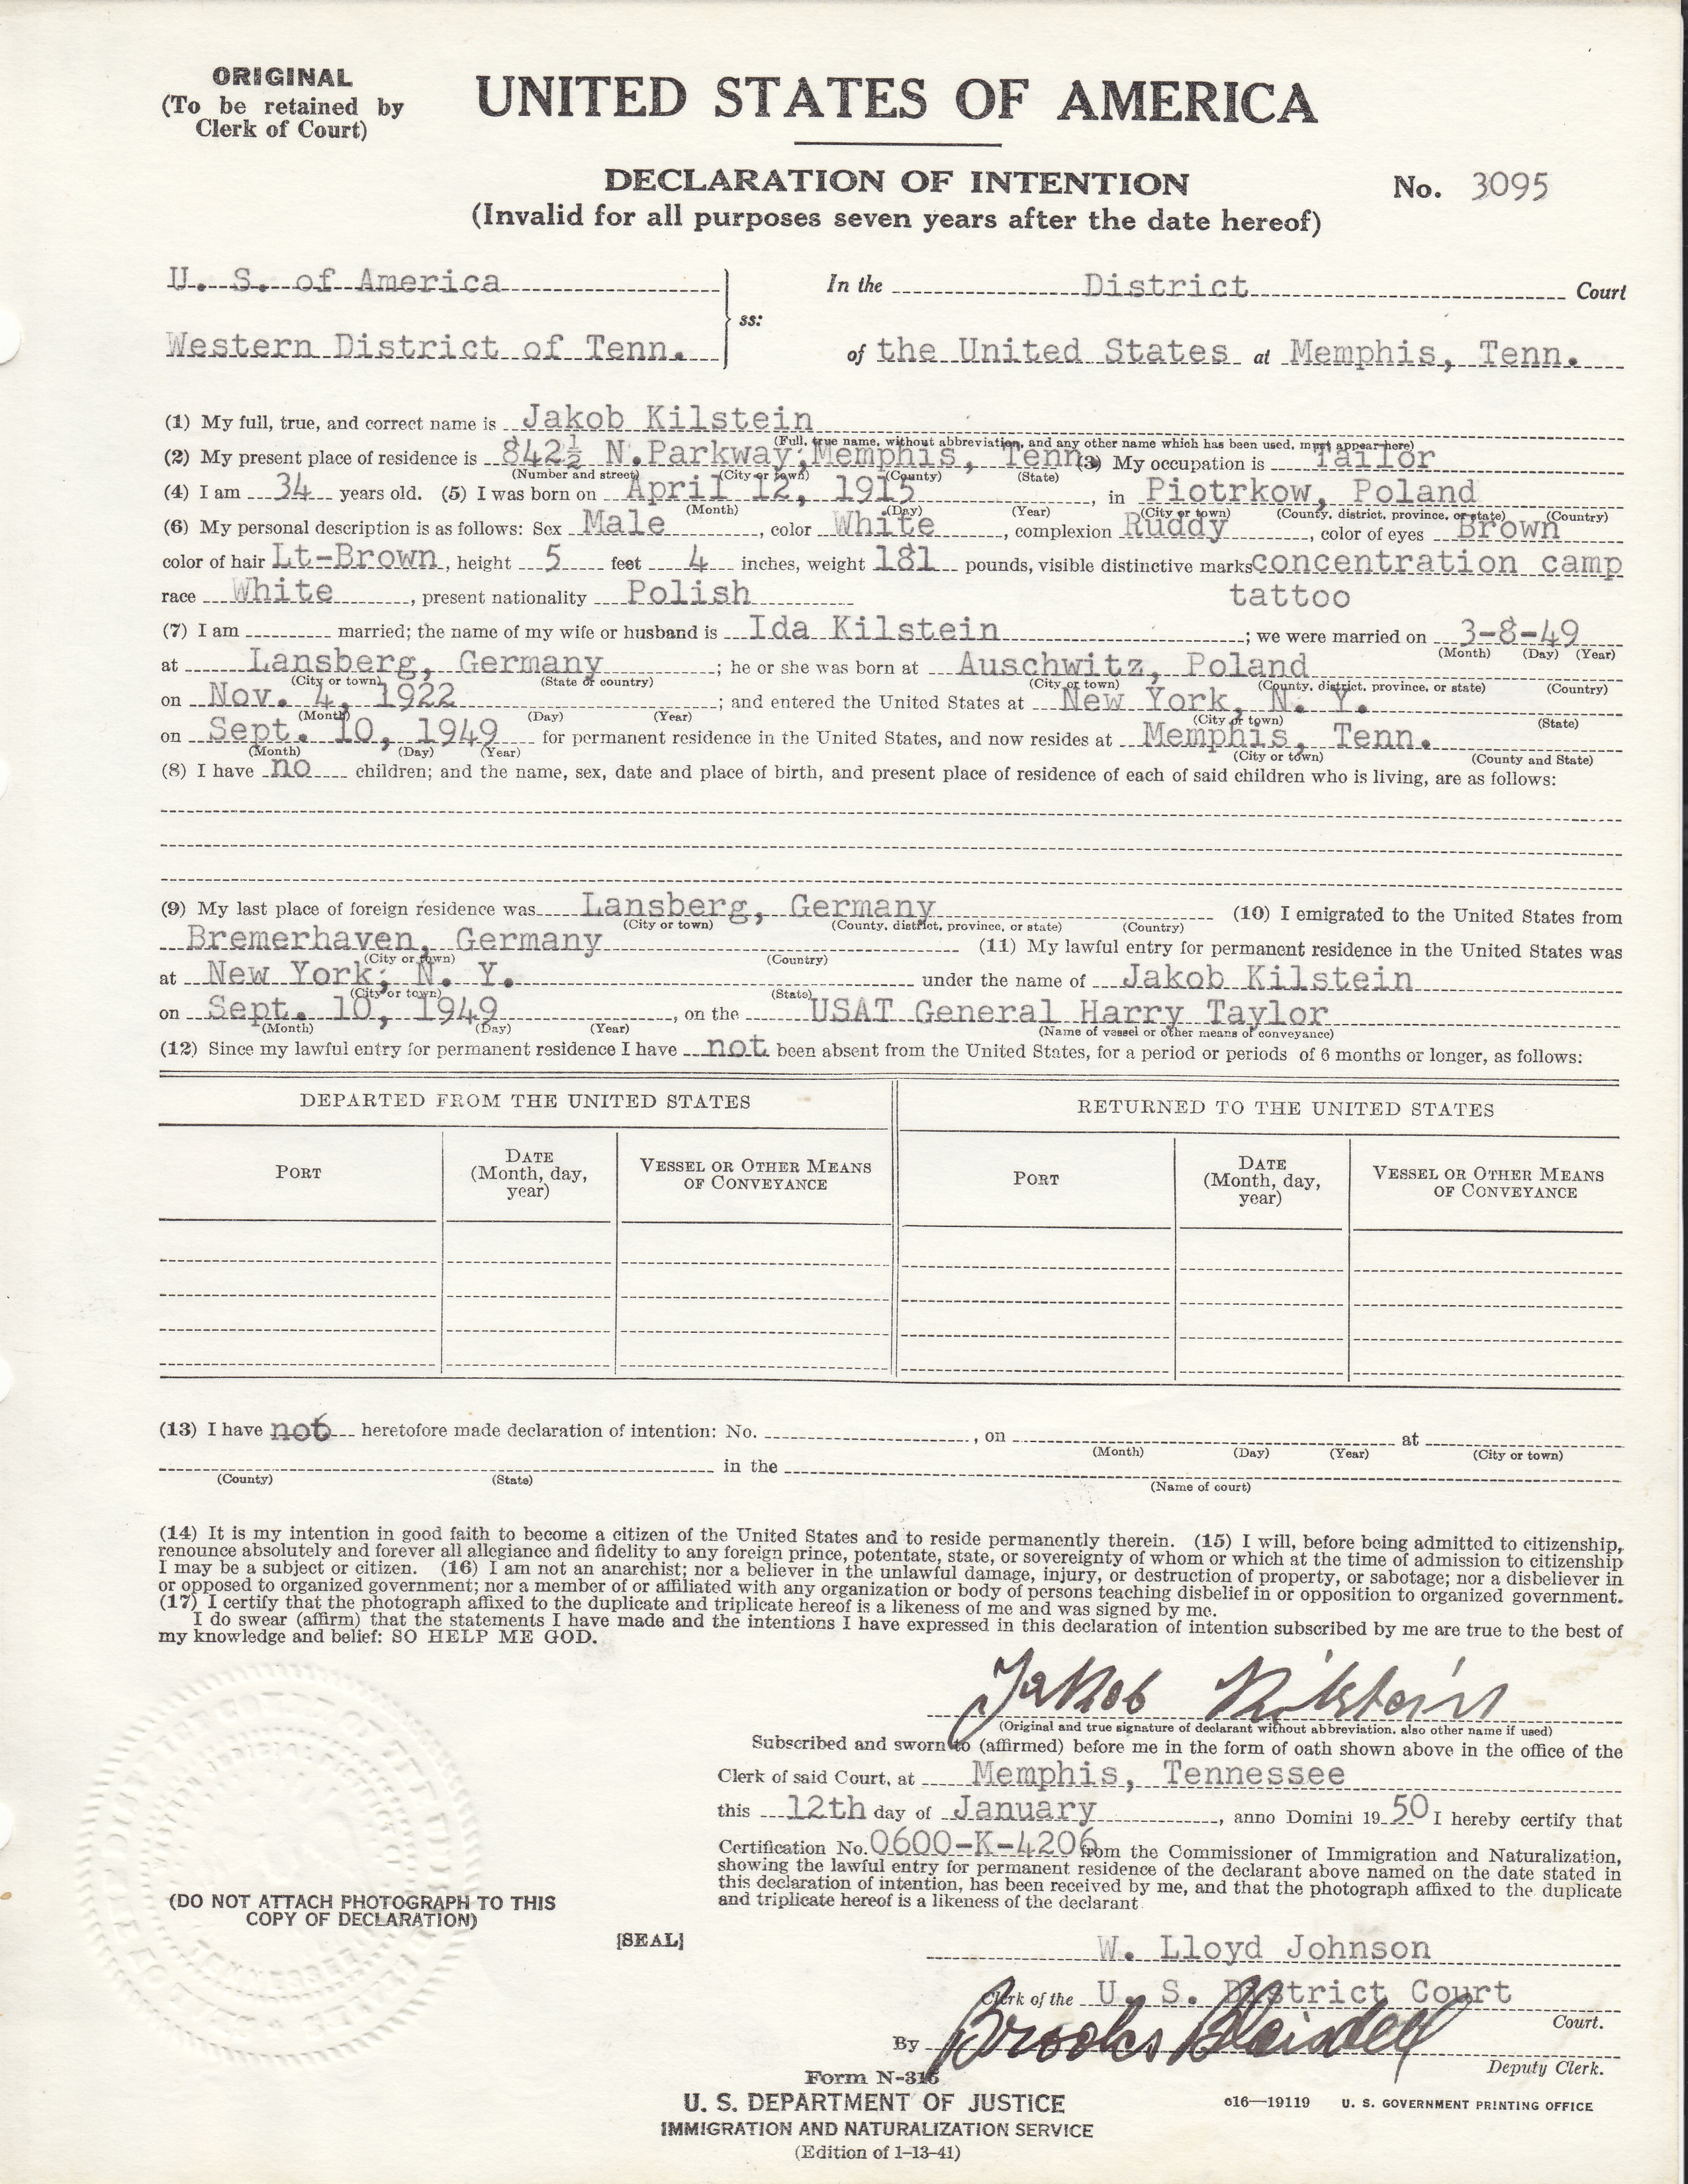 ORIGINAL
(To be retained by
Clerk of Court)
UNITED STATES OF AMERICA
DECLARATION OF INTENTION
(Invalid for all purposes seven years after the date hereof)
No. 3095
U. S. of America
Western District of Tenn.
ss:
In the District Court
of the United States at Memphis, Tenn.
(1) My full, true, and correct name is Jakob Kilstein
(Full, true name, without abbreviation, and any other name which has been used, must appear here)
(2) My present place of residence is 842½ N.Parkway;Memphis, Tenn. (3) My occupation is Tailor
(Number and street) (City or town) (County) (State)
(4) I am 34 years old. (5) I was born on April 12, 1915, in Piotrkow, Poland
(Month) (Day) (Year) (City or town) (County, district, province, or state) (Country)
(6) My personal description is as follows: Sex Male, color White, complexion Ruddy, color of eyes Brown
color of hair Lt-Brown, height 5 feet 4 inches, weight 181 pounds, visible distinctive marks concentration camp
race White, present nationality Polish tattoo
(7) I am married; the name of my wife or husband is Ida Kilstein; we were married on 3-8-49
(Month) (Day) (Year)
at Lansberg, Germany; he or she was born at Auschwitz, Poland
(City or town) (State or country) (City or town) (County, district, province, or state) (Country)
on Nov. 4, 1922; and entered the United States at New York, N. Y.
(Month) (Day) (Year) (City or town) (State)
on Sept. 10, 1949 for permanent residence in the United States, and now resides at Memphis, Tenn.
(Month) (Day) (Year) (City or town) (County and State)
(8) I have no children; and the name, sex, date and place of birth, and present place of residence of each of said children who is living, are as follows:
(9) My last place of foreign residence was Lansberg, Germany (10) I emigrated to the United States from
(City or town) (County, district, province, or state) (Country)
Bremerhaven, Germany (11) My lawful entry for permanent residence in the United States was
(City or town) (Country)
at New York; N. Y. under the name of Jakob Kilstein
(City or town) (State)
on Sept. 10, 1949, on the USAT General Harry Taylor
(Month) (Day) (Year) (Name of vessel or other means of conveyance)
(12) Since my lawful entry for permanent residence I have not been absent from the United States, for a period or periods of 6 months or longer, as follows:
DEPARTED FROM THE UNITED STATES RETURNED TO THE UNITED STATES
PORT DATE (Month, day, year) VESSEL OR OTHER MEANS OF CONVEYANCE PORT DATE (Month, day, year) VESSEL OR OTHER MEANS OF CONVEYANCE
(13) I have not heretofore made declaration of intention: No. , on at
(Month) (Day) (Year) (City or town)
in the
(County) (State) (Name of court)
(14) It is my intention in good faith to become a citizen of the United States and to reside permanently therein. (15) I will, before being admitted to citizenship,
renounce absolutely and forever all allegiance and fidelity to any foreign prince, potentate, state, or sovereignty of whom or which at the time of admission to citizenship
I may be a subject or citizen. (16) I am not an anarchist; nor a believer in the unlawful damage, injury, or destruction of property, or sabotage; nor a disbeliever in
or opposed to organized government; nor a member of or affiliated with any organization or body of persons teaching disbelief in or opposition to organized government.
(17) I certify that the photograph affixed to the duplicate and triplicate hereof is a likeness of me and was signed by me.
I do swear (affirm) that the statements I have made and the intentions I have expressed in this declaration of intention subscribed by me are true to the best of
my knowledge and belief: SO HELP ME GOD.
Jakob Kilstein
(Original and true signature of declarant without abbreviation, also other name if used)
Subscribed and sworn to (affirmed) before me in the form of oath shown above in the office of the
Clerk of said Court, at Memphis, Tennessee
this 12th day of January, anno Domini 1950 I hereby certify that
Certification No. 0600-K-4206 from the Commissioner of Immigration and Naturalization,
showing the lawful entry for permanent residence of the declarant above named on the date stated in
this declaration of intention, has been received by me, and that the photograph affixed to the duplicate
and triplicate hereof is a likeness of the declarant
(DO NOT ATTACH PHOTOGRAPH TO THIS
COPY OF DECLARATION)
[SEAL]
W. Lloyd Johnson
Clerk of the U. S. District Court
Court.
By Brooks
Deputy Clerk.
Form N-315
U. S. DEPARTMENT OF JUSTICE
IMMIGRATION AND NATURALIZATION SERVICE
(Edition of 1-13-41)
o16—19119 U. S. GOVERNMENT PRINTING OFFICE